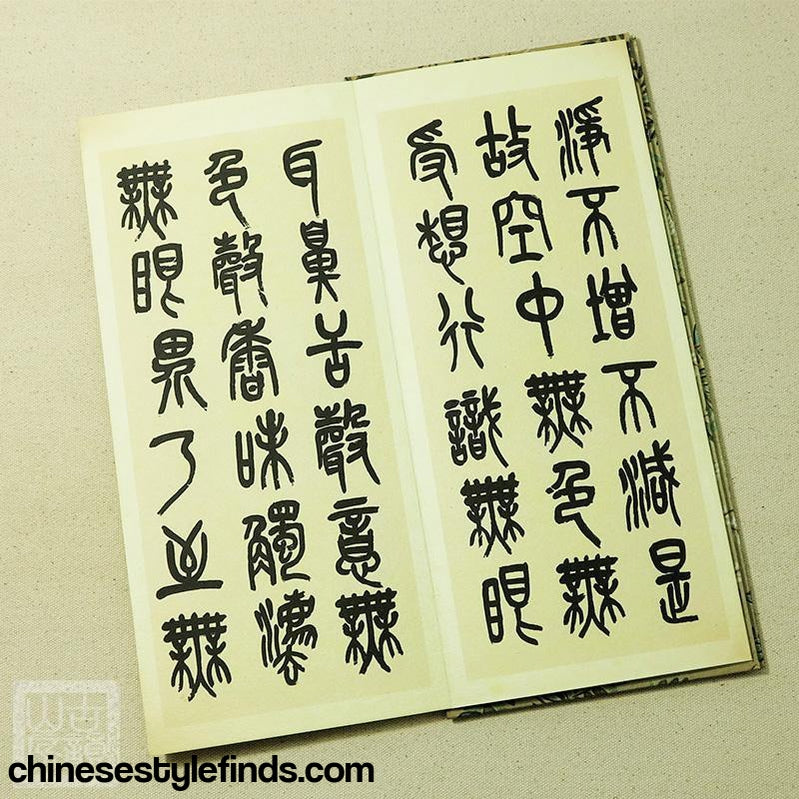 淨不增不減是
故空中無色無
受想行識無眼
耳鼻舌聲意無
色聲香味觸法
無眼界乃至無
chinesestylefinds.com